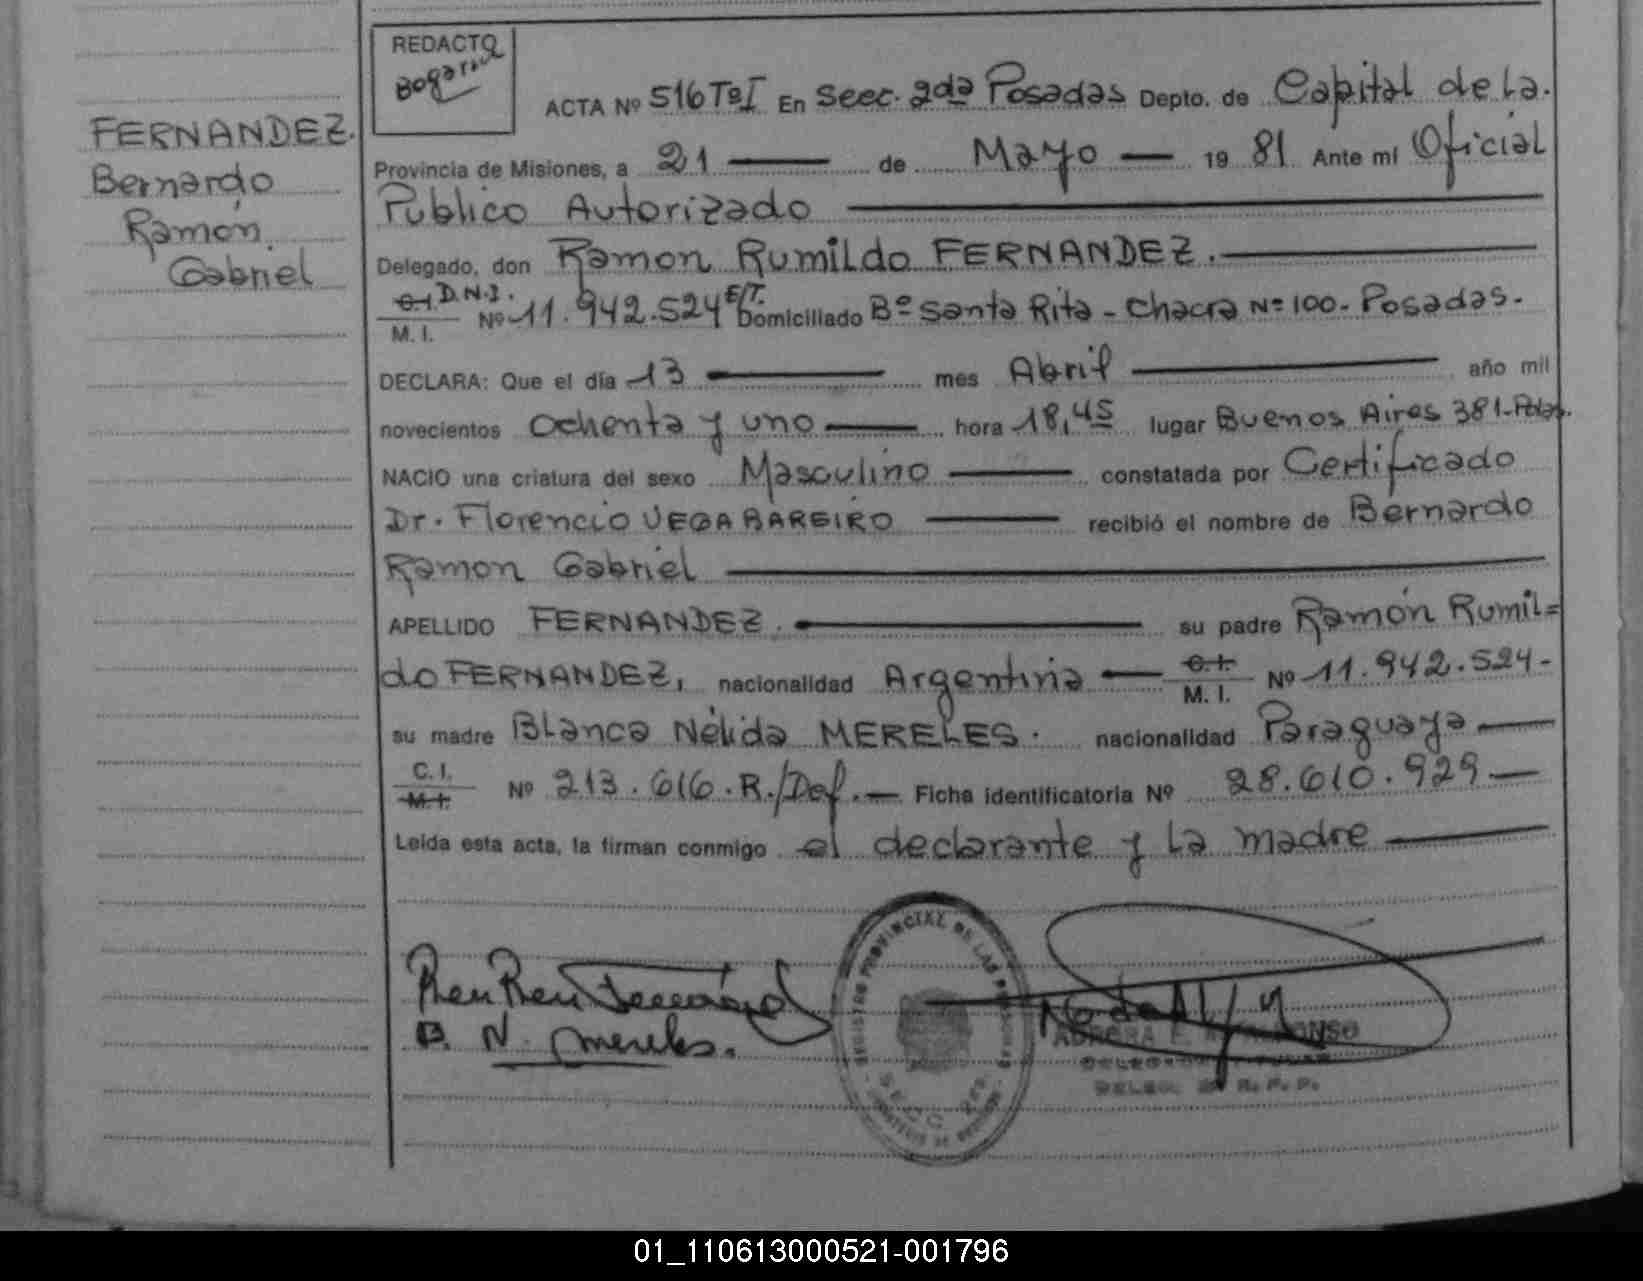 REDACTO
Bogarin
ACTA Nº 516 Tº I En Secc. 2da Posadas Depto. de Capital de La.
FERNANDEZ.
Bernardo
Ramón
Gabriel
Provincia de Misiones, a 21 de Mayo 19 81 Ante mi Oficial
Publico Autorizado
Delegado, don Ramon Rumildo FERNANDEZ.
C.I. D.N.I.
M. I. Nº 11.942.524 E/T. Domiciliado Bº Santa Rita - Chacra Nº 100. Posadas.
DECLARA: Que el día 13 mes Abril año mil
novecientos Ochenta y uno hora 18,45 lugar Buenos Aires 381-Pdas.
NACIO una criatura del sexo Masculino constatada por Certificado
Dr. Florencio VEGA BAREIRO recibió el nombre de Bernardo
Ramon Gabriel
APELLIDO FERNANDEZ. su padre Ramón Rumil=
do FERNANDEZ, nacionalidad Argentina C.I. M. I. Nº 11.942.524-
su madre Blanca Nélida MERELES. nacionalidad Paraguaya
C. I. M.I. Nº 213.616.R./Def. Ficha identificatoria Nº 28.610.929
Leída esta acta, la firman conmigo el declarante y La madre
B. N. Mereles.
REGISTRO PROVINCIAL DE LAS PERSONAS
01_110613000521-001796